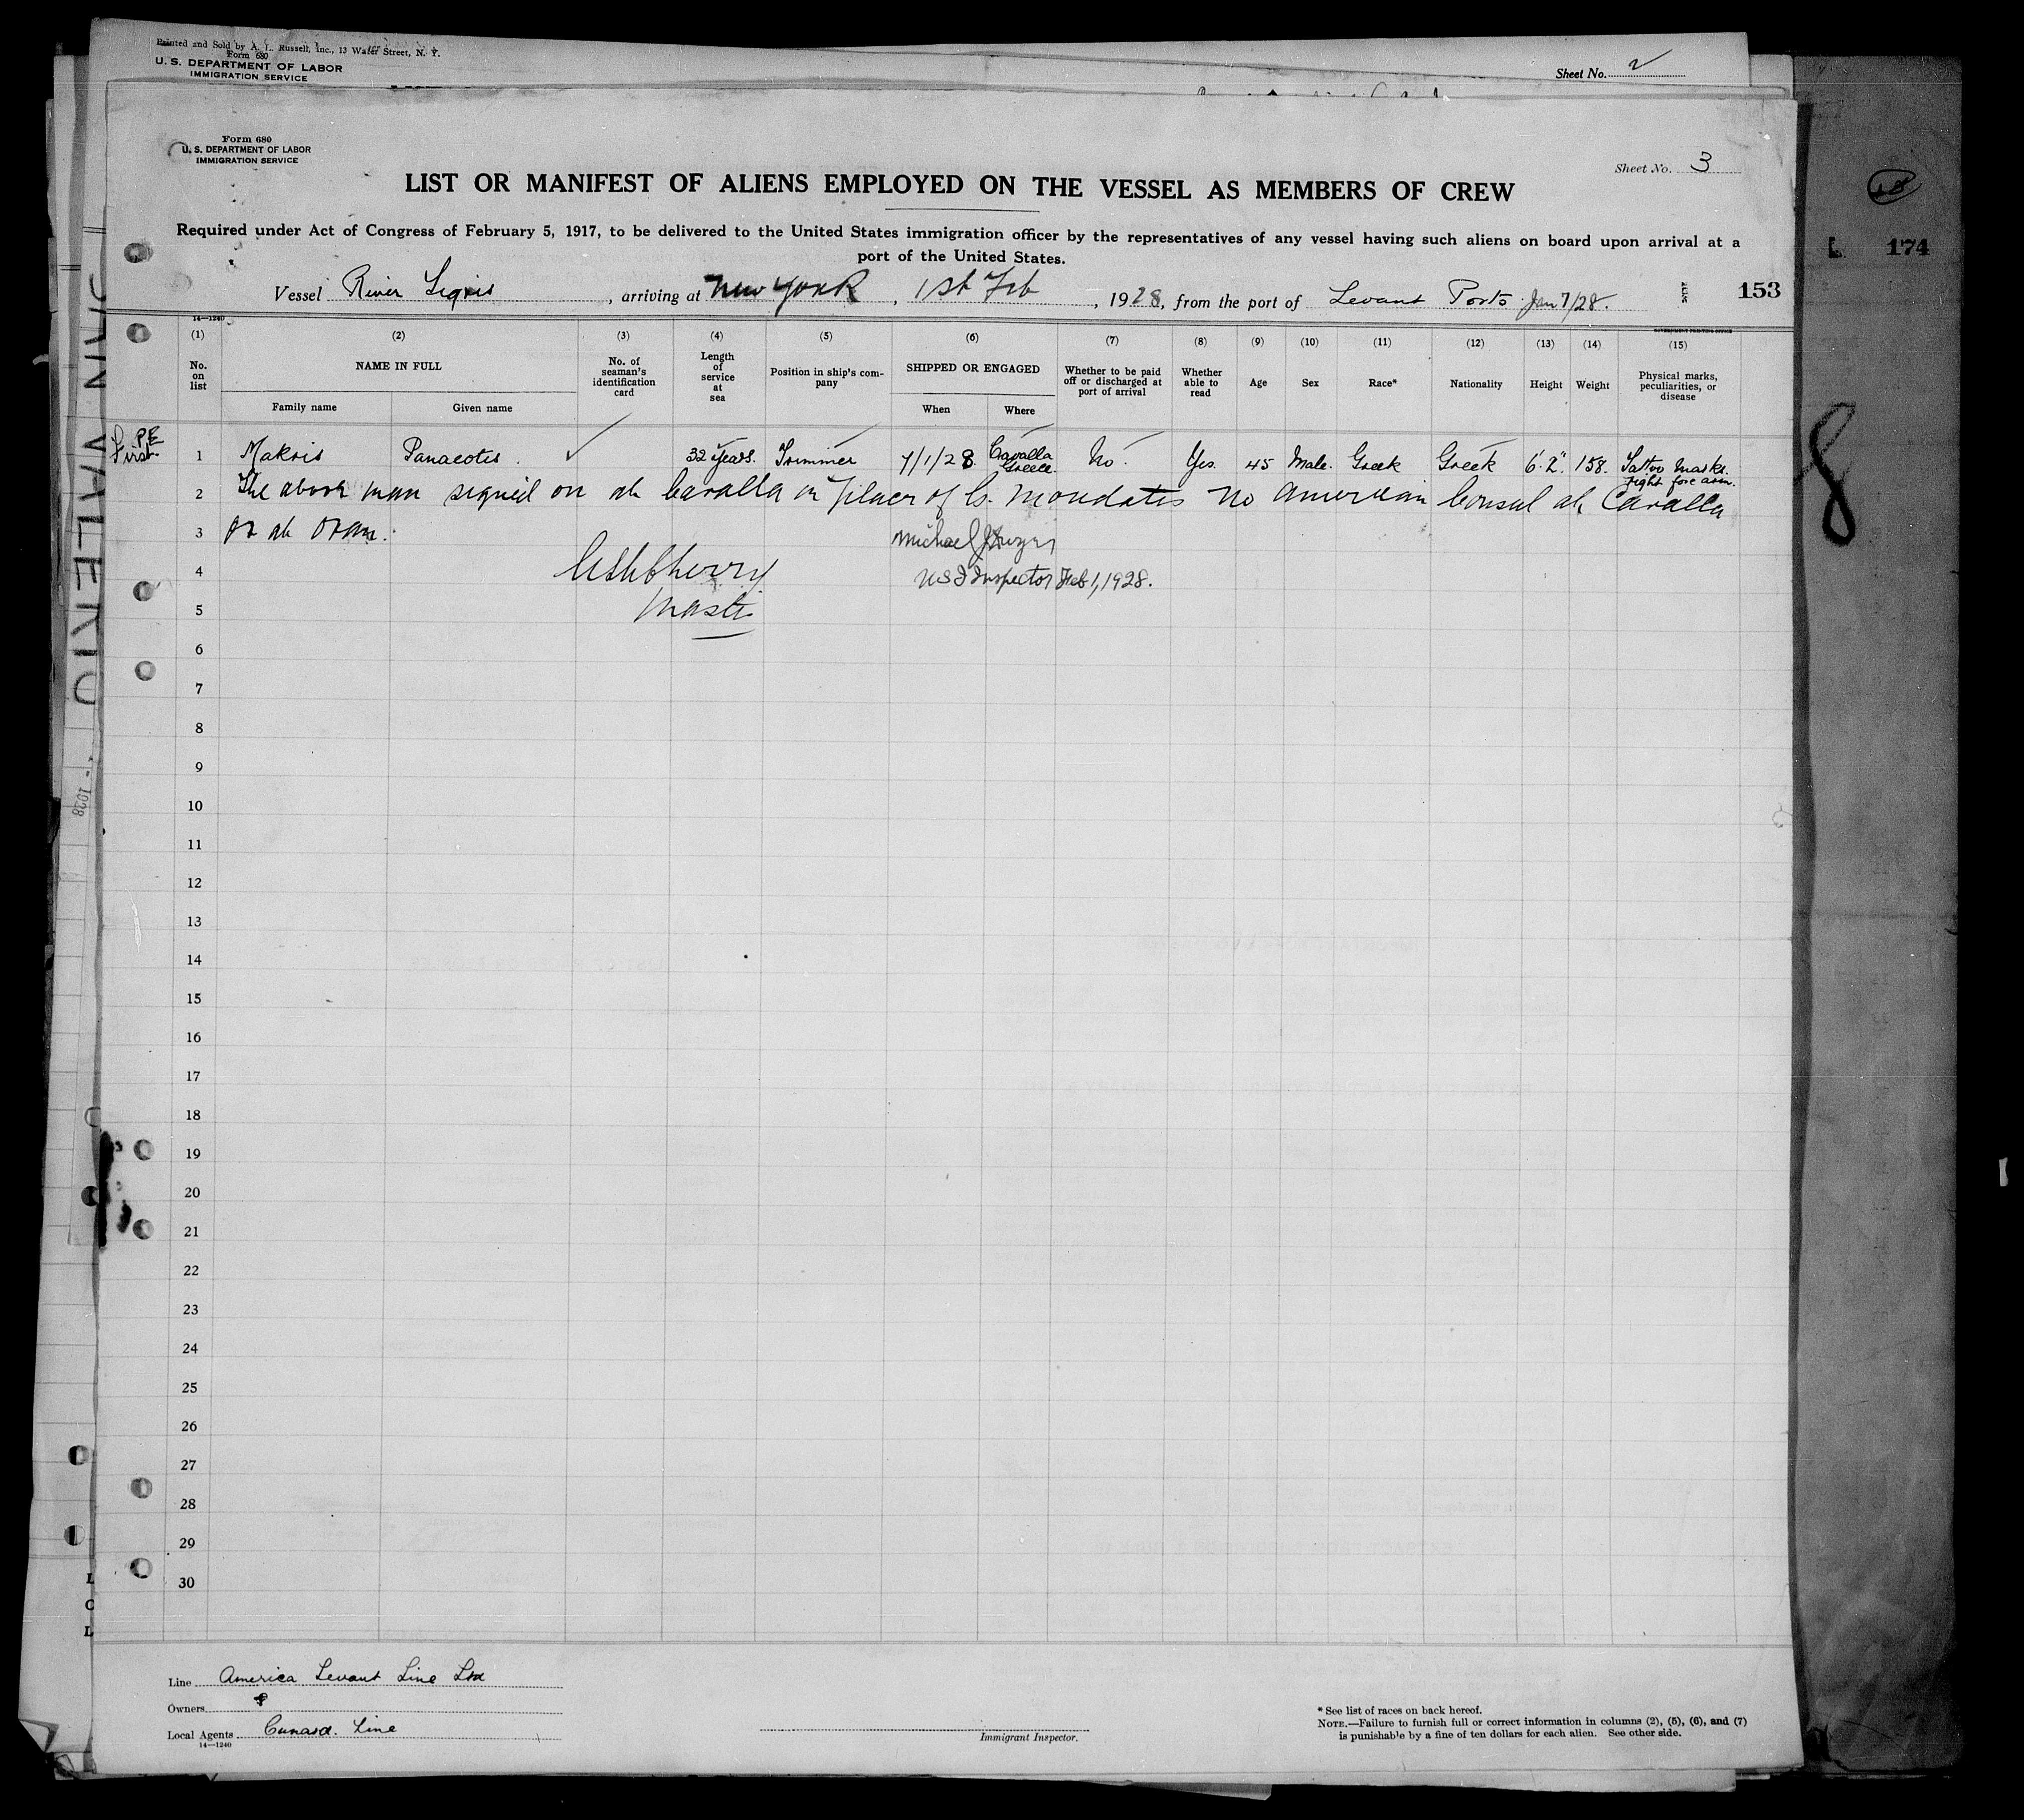 Printed and Sold by A. L. Russell, Inc., 13 Water Street, N. Y.
Form 680
U. S. DEPARTMENT OF LABOR
IMMIGRATION SERVICE
Sheet No. 2
Form 680
U. S. DEPARTMENT OF LABOR
IMMIGRATION SERVICE
Sheet No. 3
LIST OR MANIFEST OF ALIENS EMPLOYED ON THE VESSEL AS MEMBERS OF CREW
Required under Act of Congress of February 5, 1917, to be delivered to the United States immigration officer by the representatives of any vessel having such aliens on board upon arrival at a
port of the United States.
174
Vessel River Tigris, arriving at New York, 1st Feb, 1928, from the port of Levant Ports Jan 7/28. 153
14—1240
GOVERNMENT PRINTING OFFICE
(1) (2) (3) (4) (5) (6) (7) (8) (9) (10) (11) (12) (13) (14) (15)
No. on list
NAME IN FULL
Family name Given name
No. of seaman's identification card
Length of service at sea
Position in ship's company
SHIPPED OR ENGAGED
When Where
Whether to be paid off or discharged at port of arrival
Whether able to read
Age
Sex
Race*
Nationality
Height
Weight
Physical marks, peculiarities, or disease
P.E.
First 1 Makris Panaeotis. ✓ 32 years. Trimmer 7/1/28 Cavalla Greece. No. Yes. 45 Male. Greek Greek 6'.2". 158. Tattoo marks. right fore arm.
2 The above man signed on at Cavalla in place of G. Moudatis no American Consul at Cavalla
3 or at Oran.
Michael J Dwyer
4 Cherry
US I Inspector Feb 1, 1928.
5 Master
6
7
8
9
10
11
12
13
14
15
16
17
18
19
20
21
22
23
24
25
26
27
28
29
30
SAN VALERIO
1928
8
L
C
L
Line America Levant Line Ltd
Owners
Local Agents Cunard. Line
14—1240
Immigrant Inspector.
* See list of races on back hereof.
NOTE.—Failure to furnish full or correct information in columns (2), (5), (6), and (7)
is punishable by a fine of ten dollars for each alien. See other side.